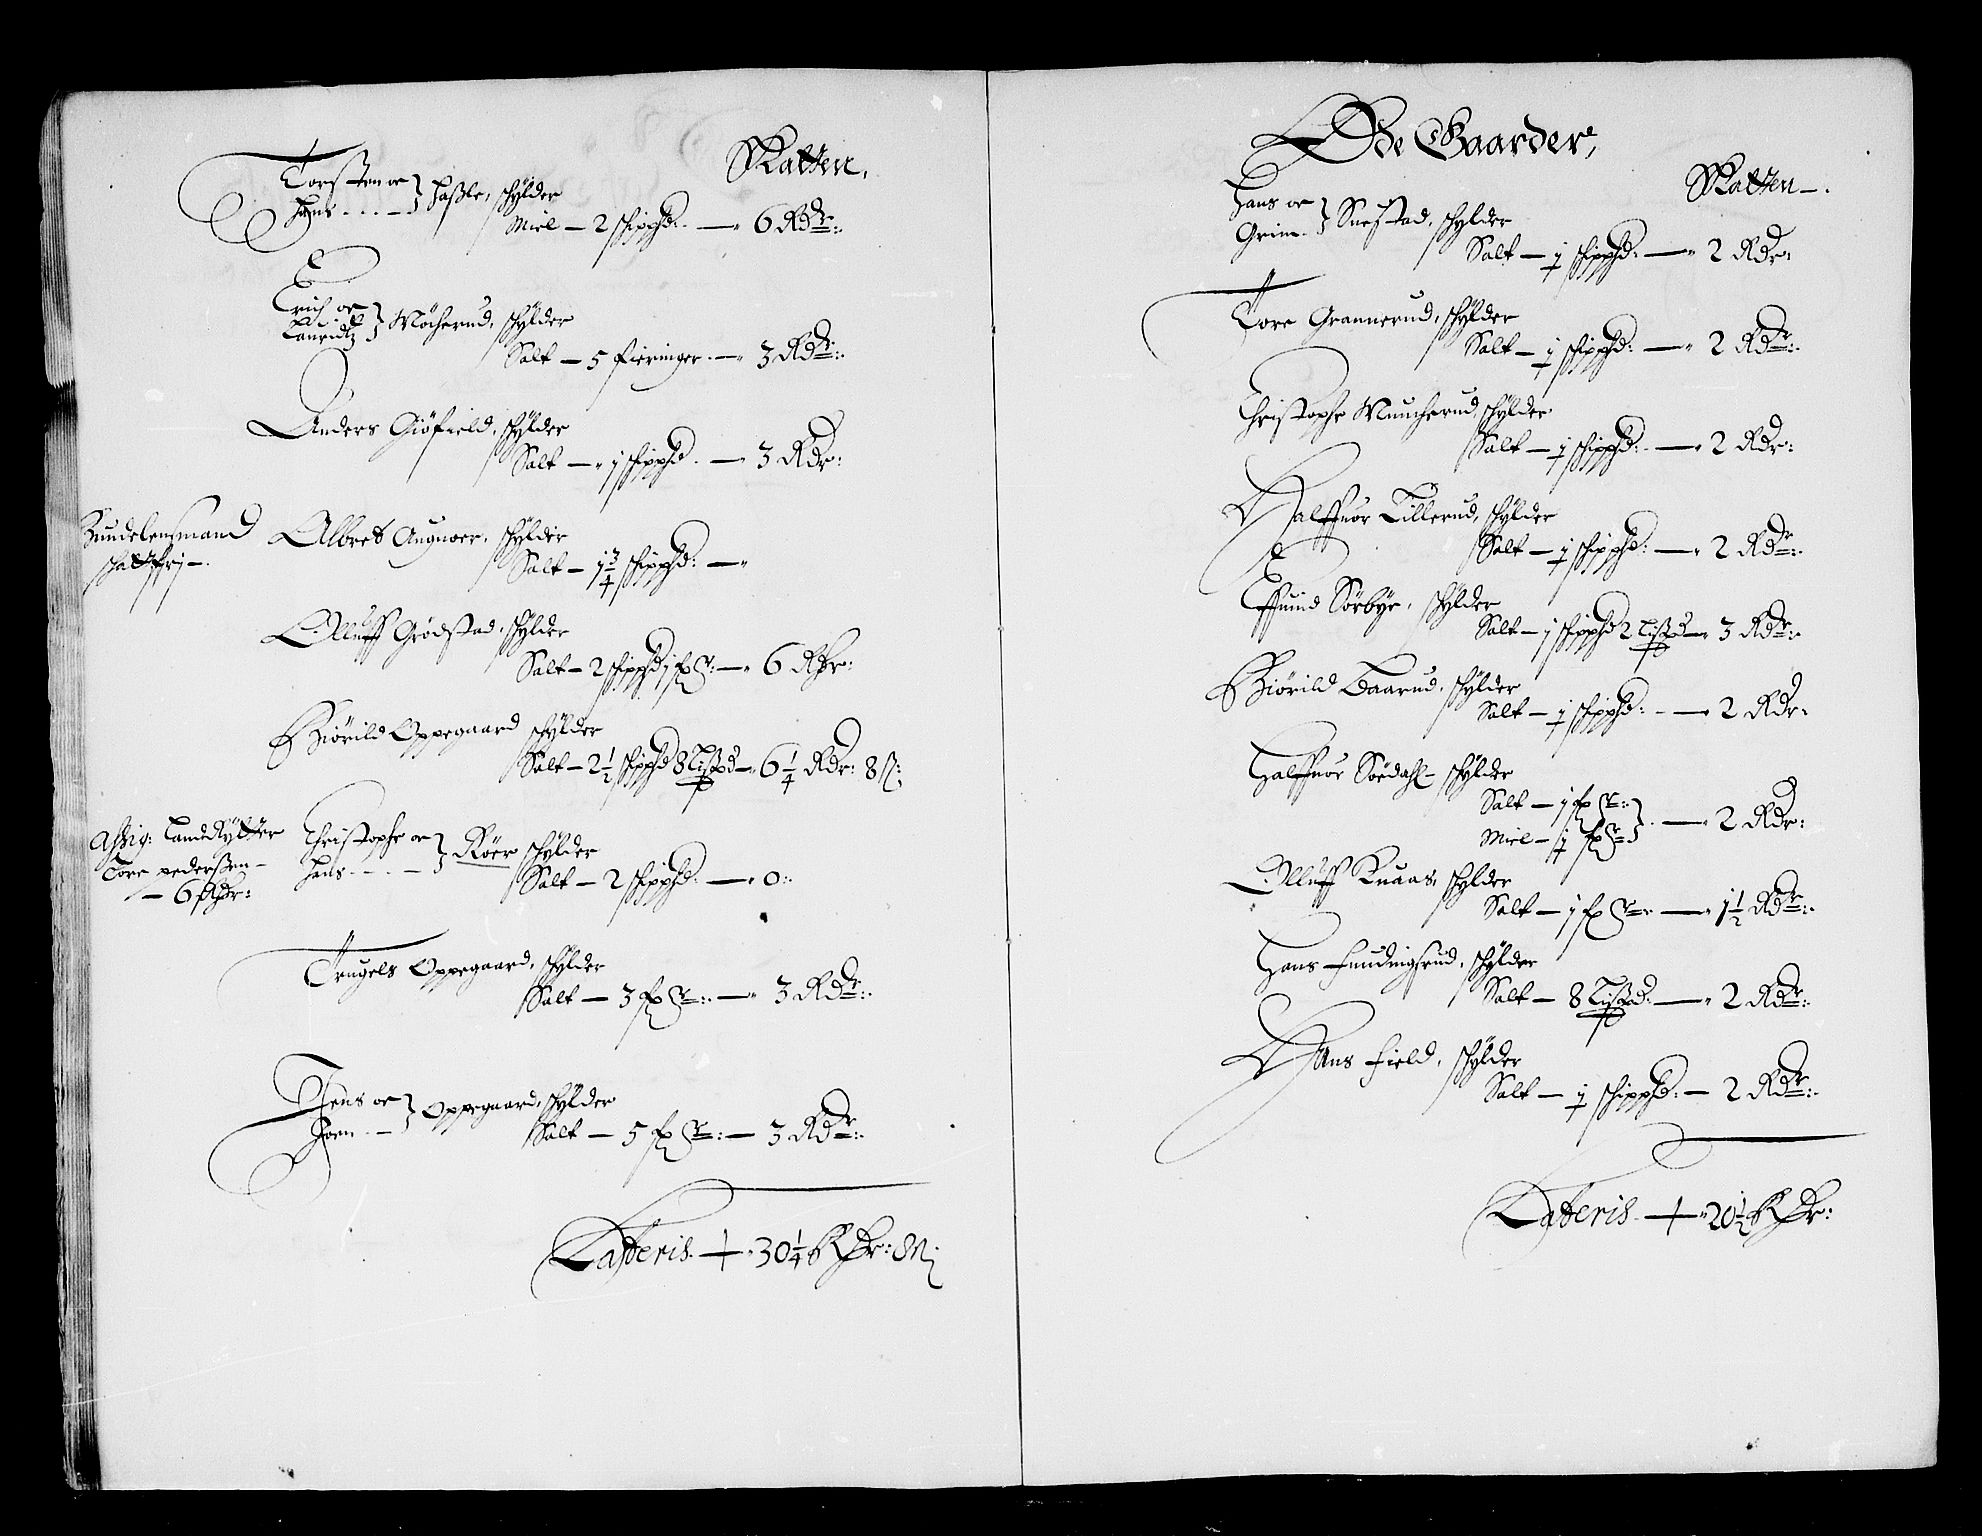 Skatten,
Torsten oc } Haßle, schylder
Hans - - - -
Miel — 2 schippd: — 6 Rdr:
Erich oc } Möcherud, schylder
Lauridtz
Salt — 5 fieringer — 3 Rdr:
Anders Giöfield, schylder
Salt — 1 schippd — 3 Rdr:
Bundelensmand
schattfrj —
Albret Augnoer, schylder
Salt — 1 3/4 schippd: —
Olluff Grödstad, schylder
Salt — 2 schippd 1 fr: — 6 Rdr:
Biörild Oppegaard schylder
Salt — 2 1/2 schippd 8 Lißpd — 6 1/4 Rdr: 8 ß:
Aßig: Landt Rytter
Tore pederßen —
— 6 Rdr:
Christopher oc } Röer schylder
Hans - - - -
Salt — 2 schippd: — 0:
Trugels Oppegaard, schylder
Salt — 3 fr: — 3 Rdr:
Jens oc } Oppegaard, schylder
Joen - -
Salt — 5 fr: — 3 Rdr:
Latteris — 30 1/4 Rdr: 8 ß:
Øde Gaarder,
Skatten —
Hans oc } Snestad, schylder
Grim
Salt — 1 schippd: — 2 Rdr:
Tore Grannerud, schylder
Salt — 1 schippd: — 2 Rdr:
Christophr Muncherud, schylder
Salt — 1 schippd: — 2 Rdr:
Halffuor Tillerud, schylder
Salt — 1 schippd: — 2 Rdr:
Effuind Sörbye, schylder
Salt — 1 schippd 2 Lißpd — 3 Rdr:
Biörild Baarud, schylder
Salt — 1 schippd: — 2 Rdr:
Halffuor Sördahl — schylder
Salt — 1 fr:
Miel — 1 fr: } — 2 Rdr:
Olluff Knaas, schylder
Salt — 1 fr: — 1 1/2 Rdr:
Hans Hundingsrud, schylder
Salt — 8 Lißpd: — 2 Rdr:
Hans Field, schylder
Salt — 1 schippd: — 2 Rdr:
Latteris — 20 1/2 Rdr: